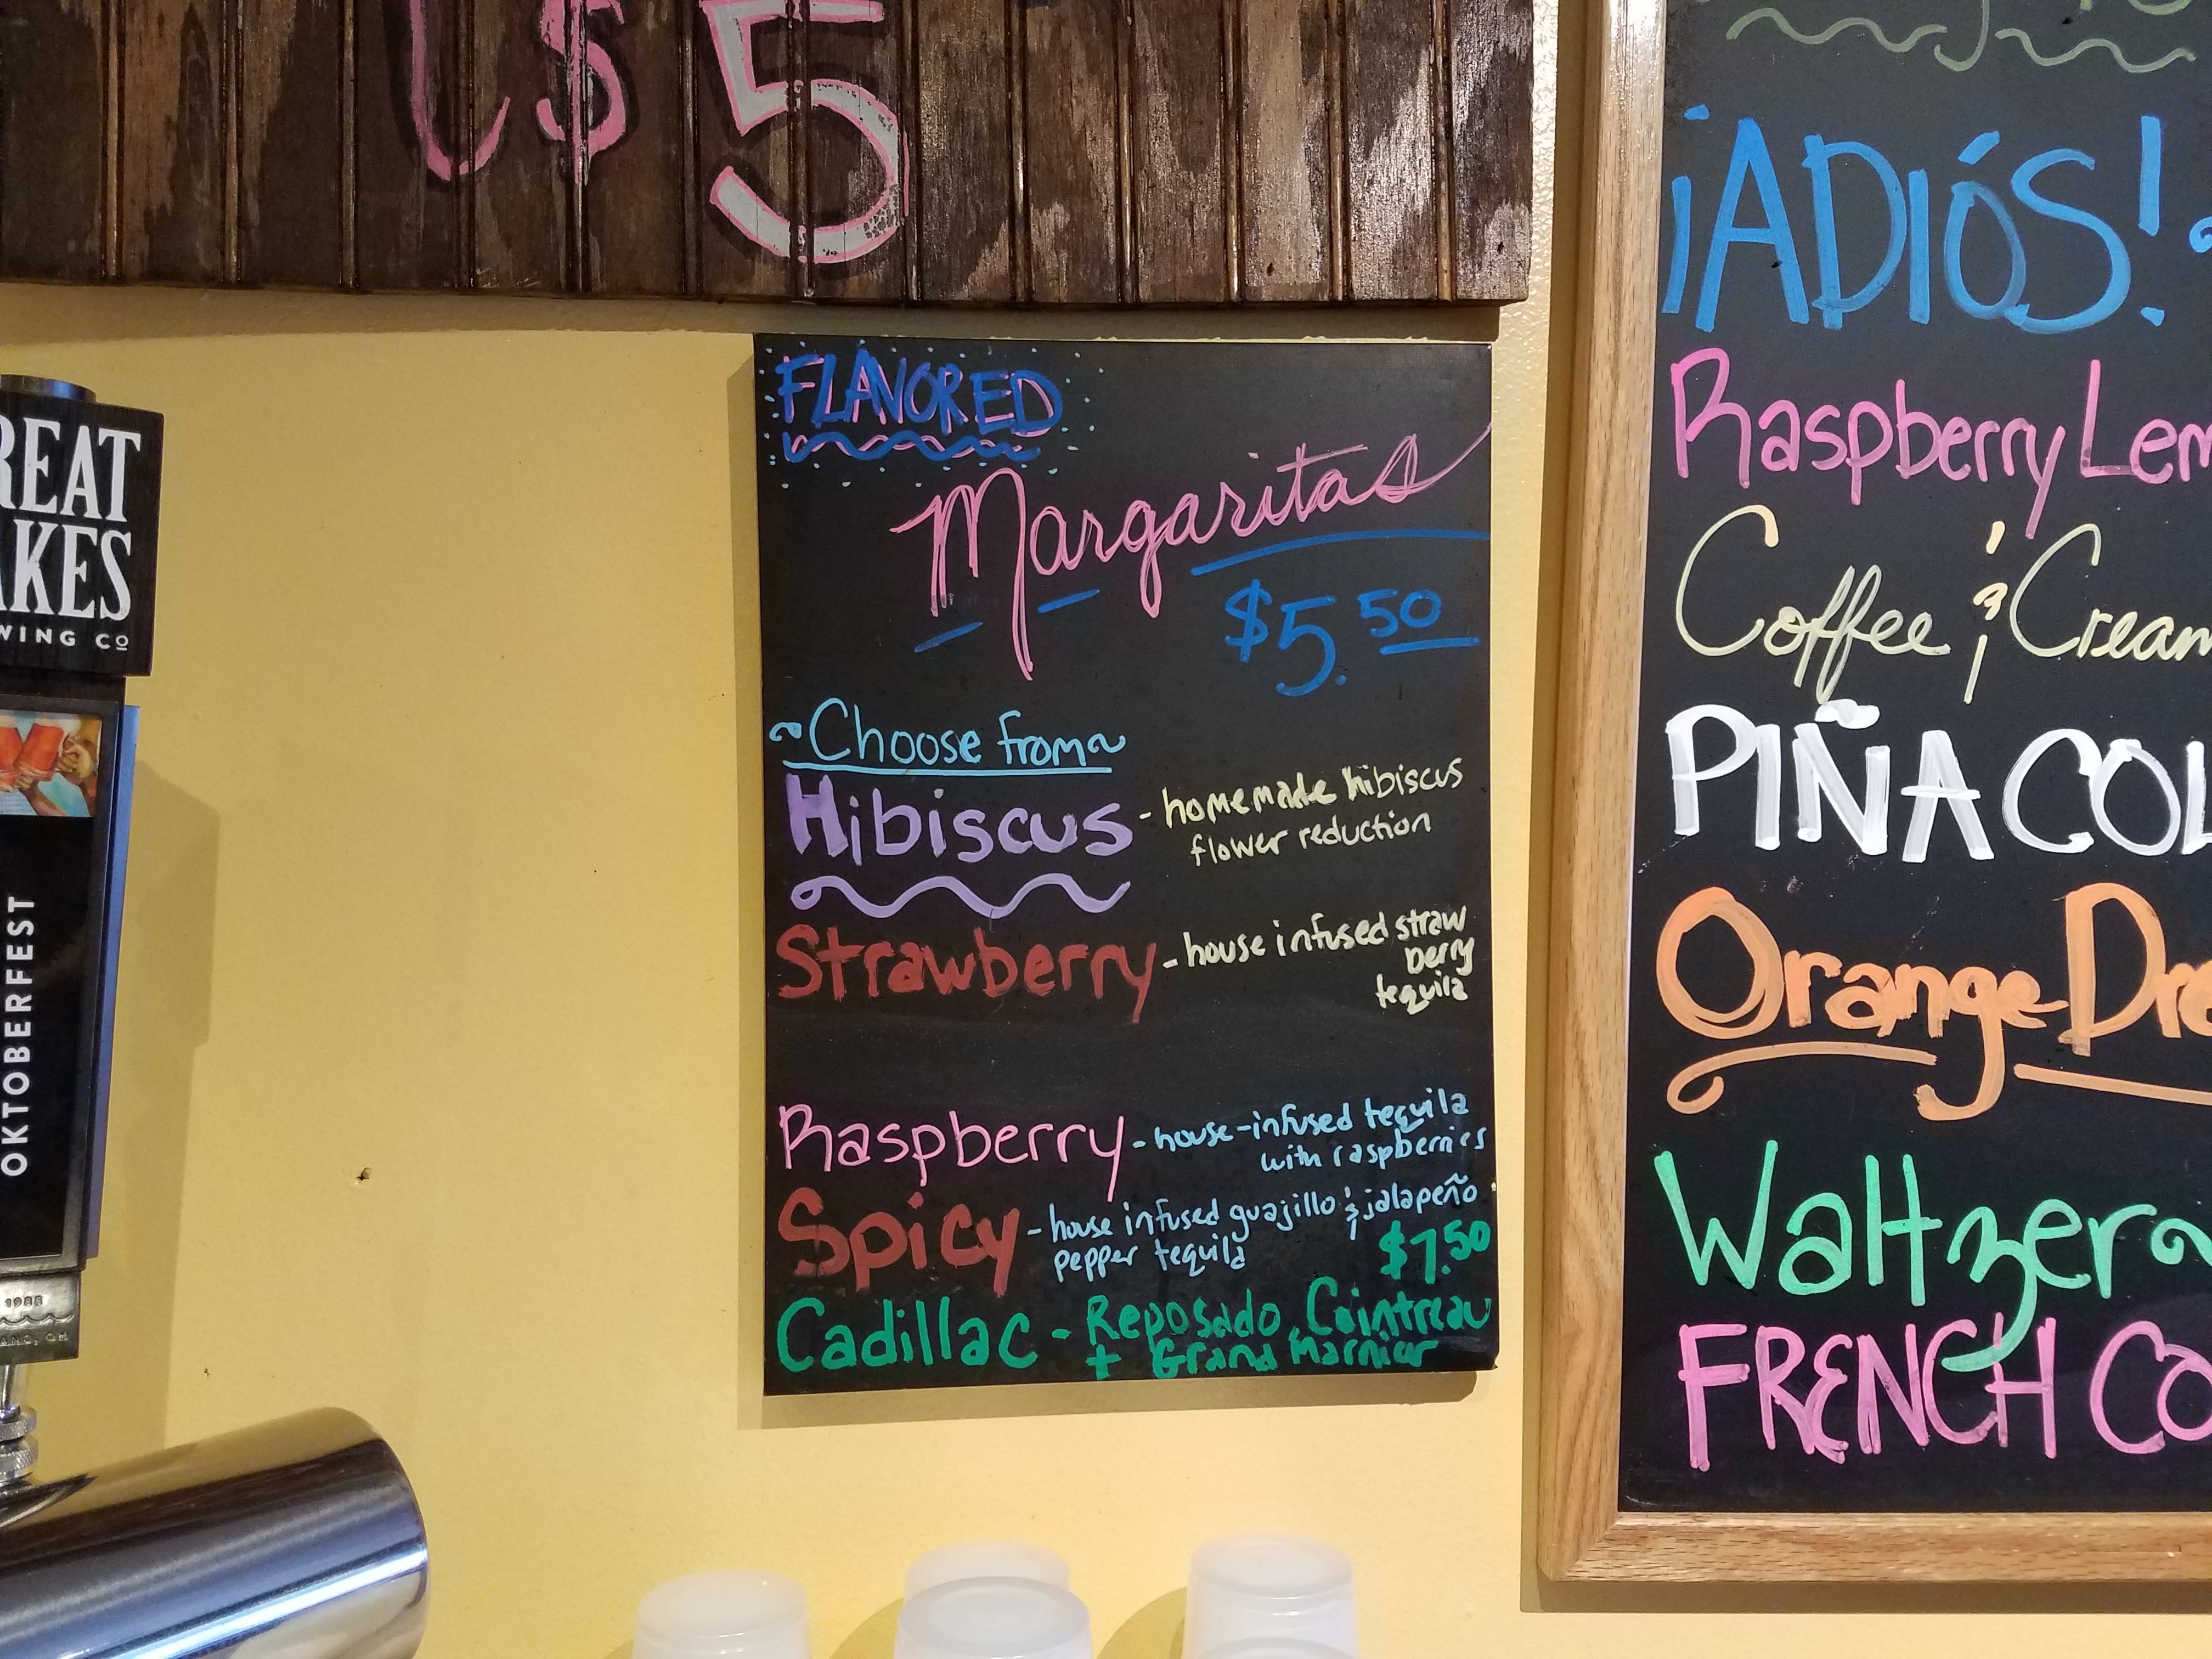 $5
REAT
AKES
WING CO
OKTOBERFEST
1988
FLAVORED
Margaritas
$5.50
~Choose from~
Hibiscus - homemade hibiscus
flower reduction
Strawberry - house infused straw
berry
tequila
Raspberry - house-infused tequila
with raspberries
Spicy - house infused guajillo & jalapeño
pepper tequila
$7.50
Cadillac - Reposado, Cointreau
+ Grand Marnier
¡ADIÓS!
Raspberry Lem
Coffee & Cream
PIÑA COL
Orange Dre
Waltzer
FRENCH CO